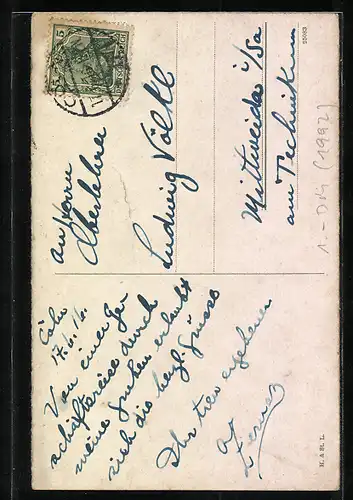 Cöln
17.6.16.
Von einer Ge-
schäftsreise durch
meine
sich die herzl. Grüsse
Ihr treu ergebener
an Herrn
Ludwig Völkl
Mittweida i/Sa
am Technikum
5
1.- DM (1992)
25083
H. & St. L.